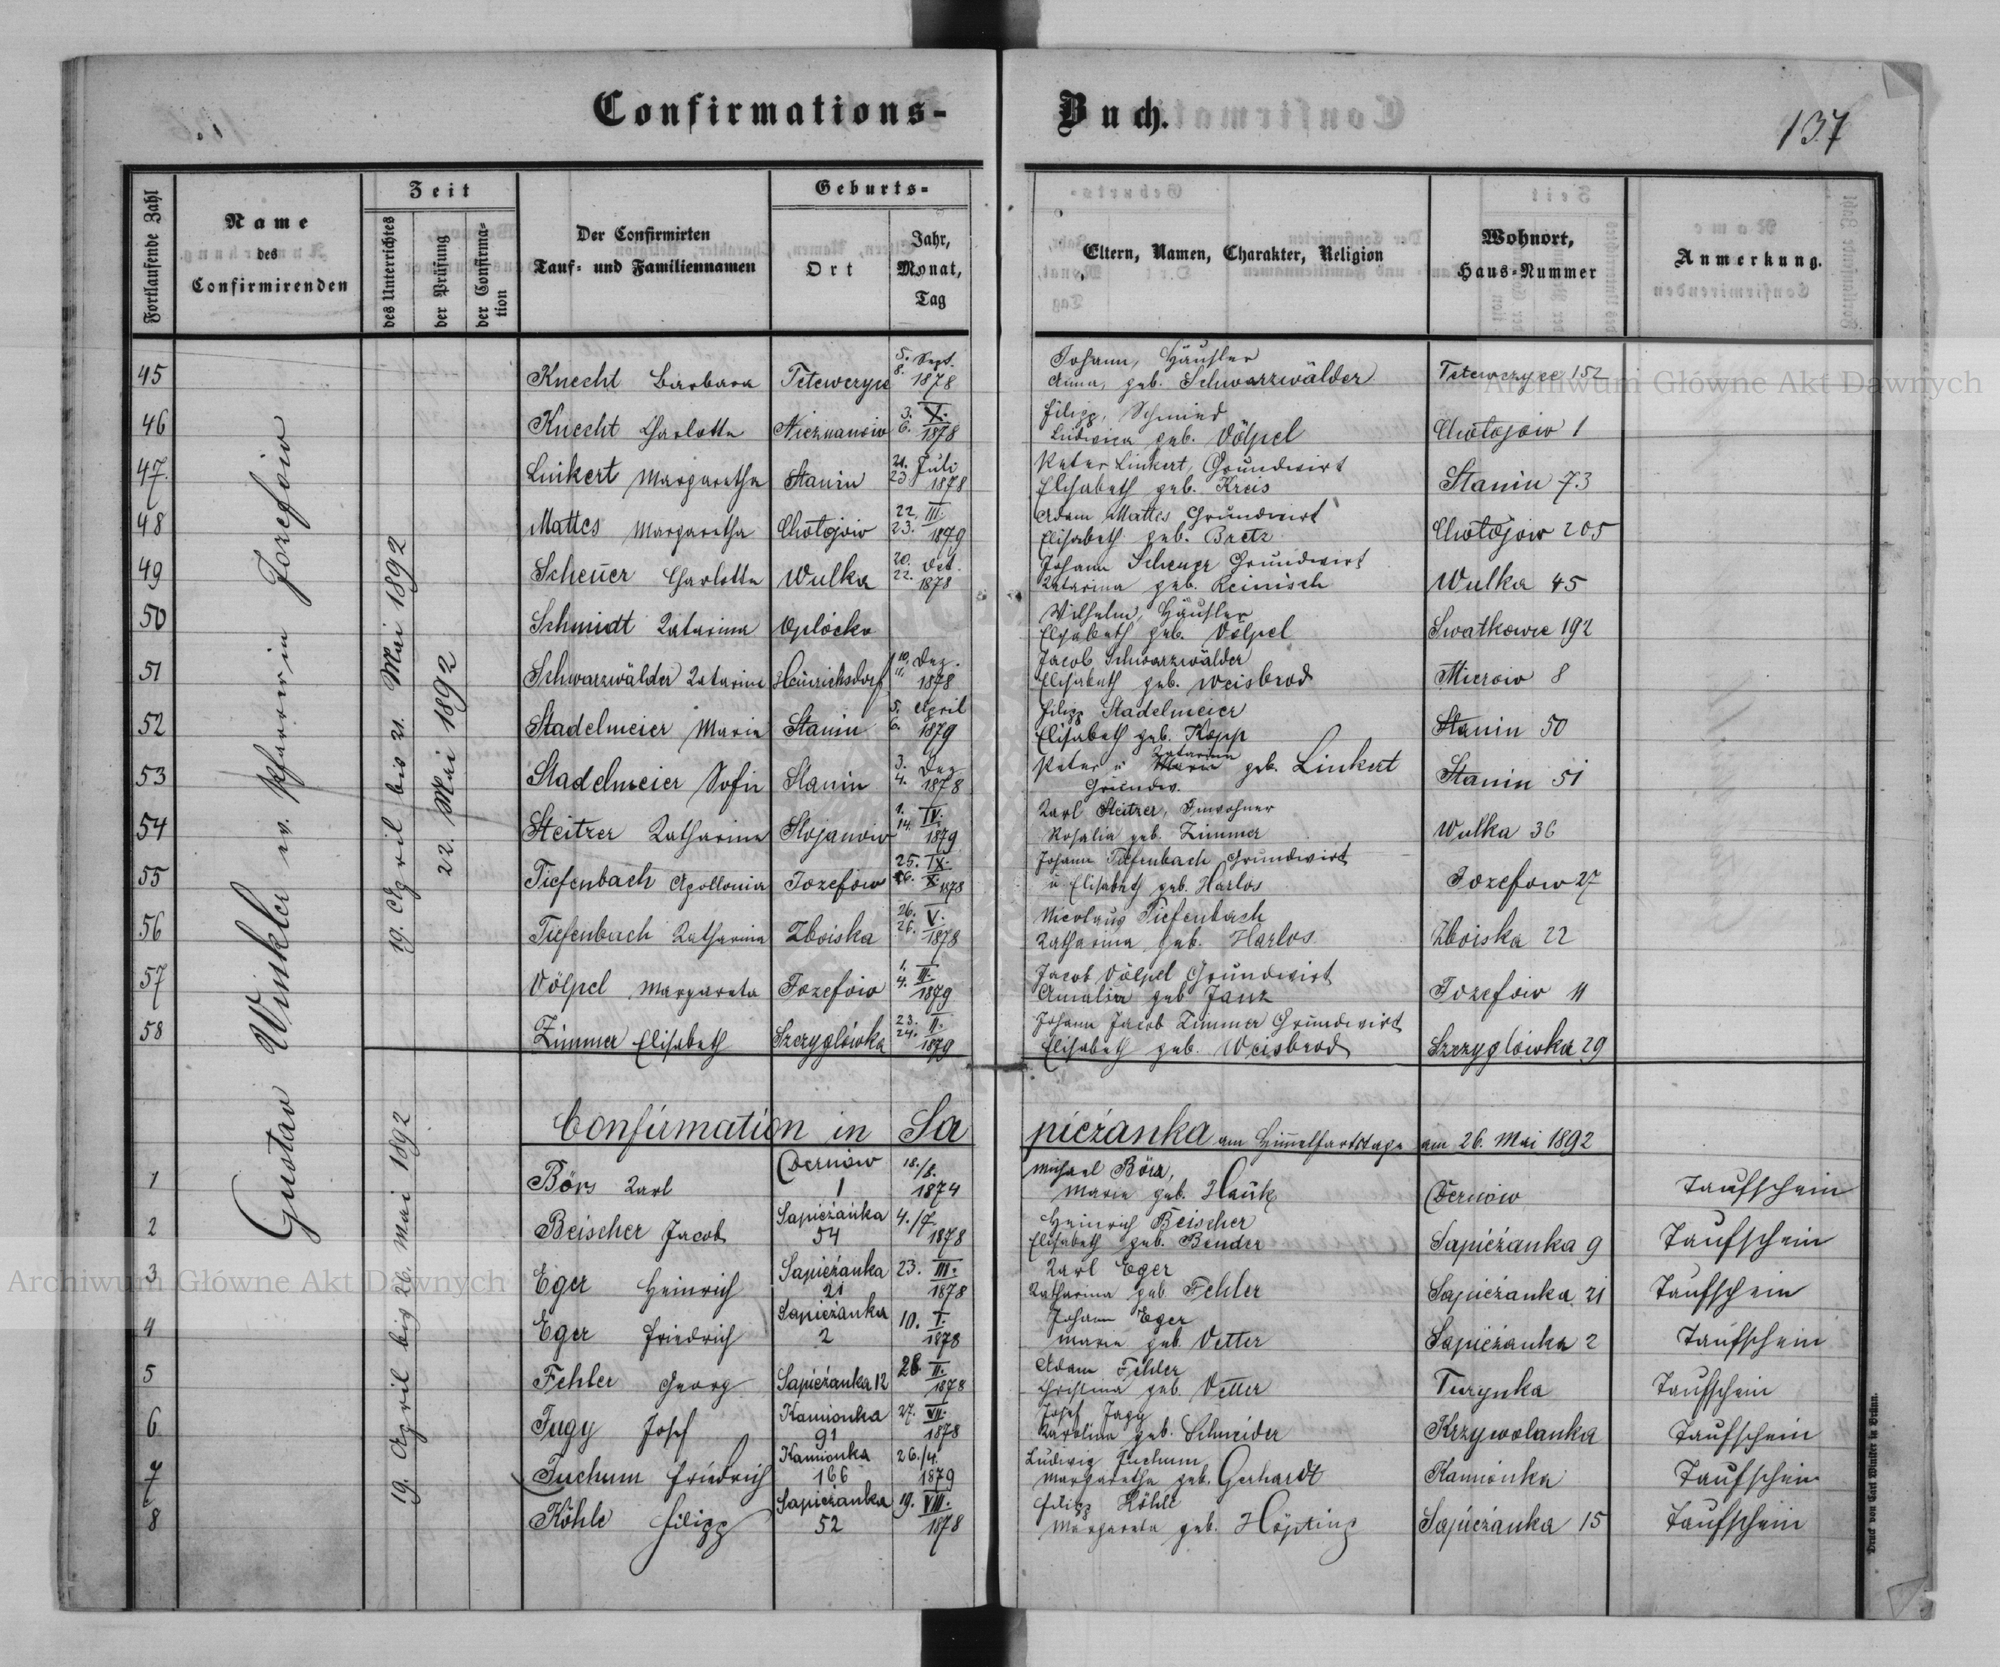 Confirmations-
Buch.
137
Fortlaufende Zahl
Name
des
Confirmirenden
Zeit
des Unterrichtes
der Prüfung
der Confirma-
tion
Der Confirmirten
Tauf- und Familiennamen
Geburts-
Ort
Jahr,
Monat,
Tag
Eltern, Namen, Charakter, Religion
Wohnort,
Haus-Nummer
Anmerkung.
Gustav Winkler ev. Pfarrer in Jozefow
19. April bis 21. Mai 1892
22. Mai 1892
45 Knecht Barbara Tetewczyce 5. Sept. 8. 1878
Johann, Häusler
Anna, geb. Schwarzwälder Tetewczyce 152
46 Knecht Charlotte Nieznanow 3. X. 6. 1878
Filipp, Schmied
Ludwica geb. Völpel Chotojow 1
47. Linkert Margaretha Stanin 21. Juli 23 1878
Peter Linkert, Grundwirt
Elisabeth geb. Kreis Stanin 73
48 Mattes Margaretha Chotojow 22. III. 23. 1879
Adam Mattes Grundwirt
Elisabeth geb. Bretz Chotojow 205
49 Scheuer Charlotte Wulka 20. Oct. 22. 1878
Johann Scheuer Grundwirt
Katarina geb. Reinisch Wulka 45
50 Schmidt Katarina Opłócko
Wilhelm, Häusler
Elisabeth geb. Völpel Swatkowce 192
51 Schwarzwälder Katarina Heinrichsdorf 10. Dez. 11. 1878
Jacob Schwarzwälder
Elisabeth geb. Weisbrod Mierow 8
52 Stadelmeier Maria Stanin 5. April 6. 1879
Filipp Stadelmeier
Elisabeth geb. Kopp Stanin 50
53 Stadelmeier Sofie Stanin 3. Dez 4. 1878
Peter u Maria Katarina geb. Linkert
Grundw. Stanin 51
54 Steitzer Katharina Stojanow 1. IV. 14. 1879
Karl Steitzer, Inwohner
Rosalia geb. Zimmer Wulka 36
55 Tiefenbach Apollonia Jozefow 25. IX. 26. X. 1878
Johann Tiefenbach Grundwirt
u Elisabeth geb. Harlos Jozefow 27
56 Tiefenbach Katharina Zboiska 26. V. 26. 1878
Nicolaus Tiefenbach
Katharina geb. Harlos Zboiska 22
57 Völpel Margareta Jozefow 1. III. 4. 1879
Jacob Völpel Grundwirt
Amalia geb Janz Jozefow 11
58 Zimmer Elisabeth Szczyglówka 23. II. 24. 1879
Johann Jacob Zimmer Grundwirt
Elisabeth geb. Weisbrod Szczyglowka 29
Confirmation in Sapieżanka am Himmelfartstage am 26. Mai 1892
19. April bis 26. Mai 1892
1 Börs Karl Dernów 1 18./8. 1874
Michael Börs,
Marie geb. Hauk Dernow Taufschein
2 Beischer Jacob Sapieżanka 54 4./7. 1878
Heinrich Beischer
Elisabeth geb. Bender Sapieżanka 9 Taufschein
3 Eger Heinrich Sapieżanka 21 23. III. 1878
Karl Eger
Katharina geb. Fehler Sapieżanka 21 Taufschein
4 Eger Friedrich Sapieżanka 2 10. I. 1878
Johann Eger
Marie geb. Vetter Sapieżanka 2 Taufschein
5 Fehler Georg Sapieżanka 12 28 II. 1878
Adam Fehler
Christina geb. Vetter Turynka Taufschein
6 Jugy Josef Kamionka 91 27. VII. 1878
Josef Jagy
Karolina geb. Schneider Krzywolanka Taufschein
7 Juchum Friedrich Kamionka 166 26./4. 1879
Ludwig Juchum
Margaretha geb. Gerhardt Kamionka Taufschein
8 Köhle Filipp Sapieżanka 52 19. VIII. 1878
Filipp Köhle
Margareta geb. Höpting Sapieżanka 15 Taufschein
Druck von Carl Winiker in Brünn.
Archiwum Główne Akt Dawnych
Archiwum Główne Akt Dawnych